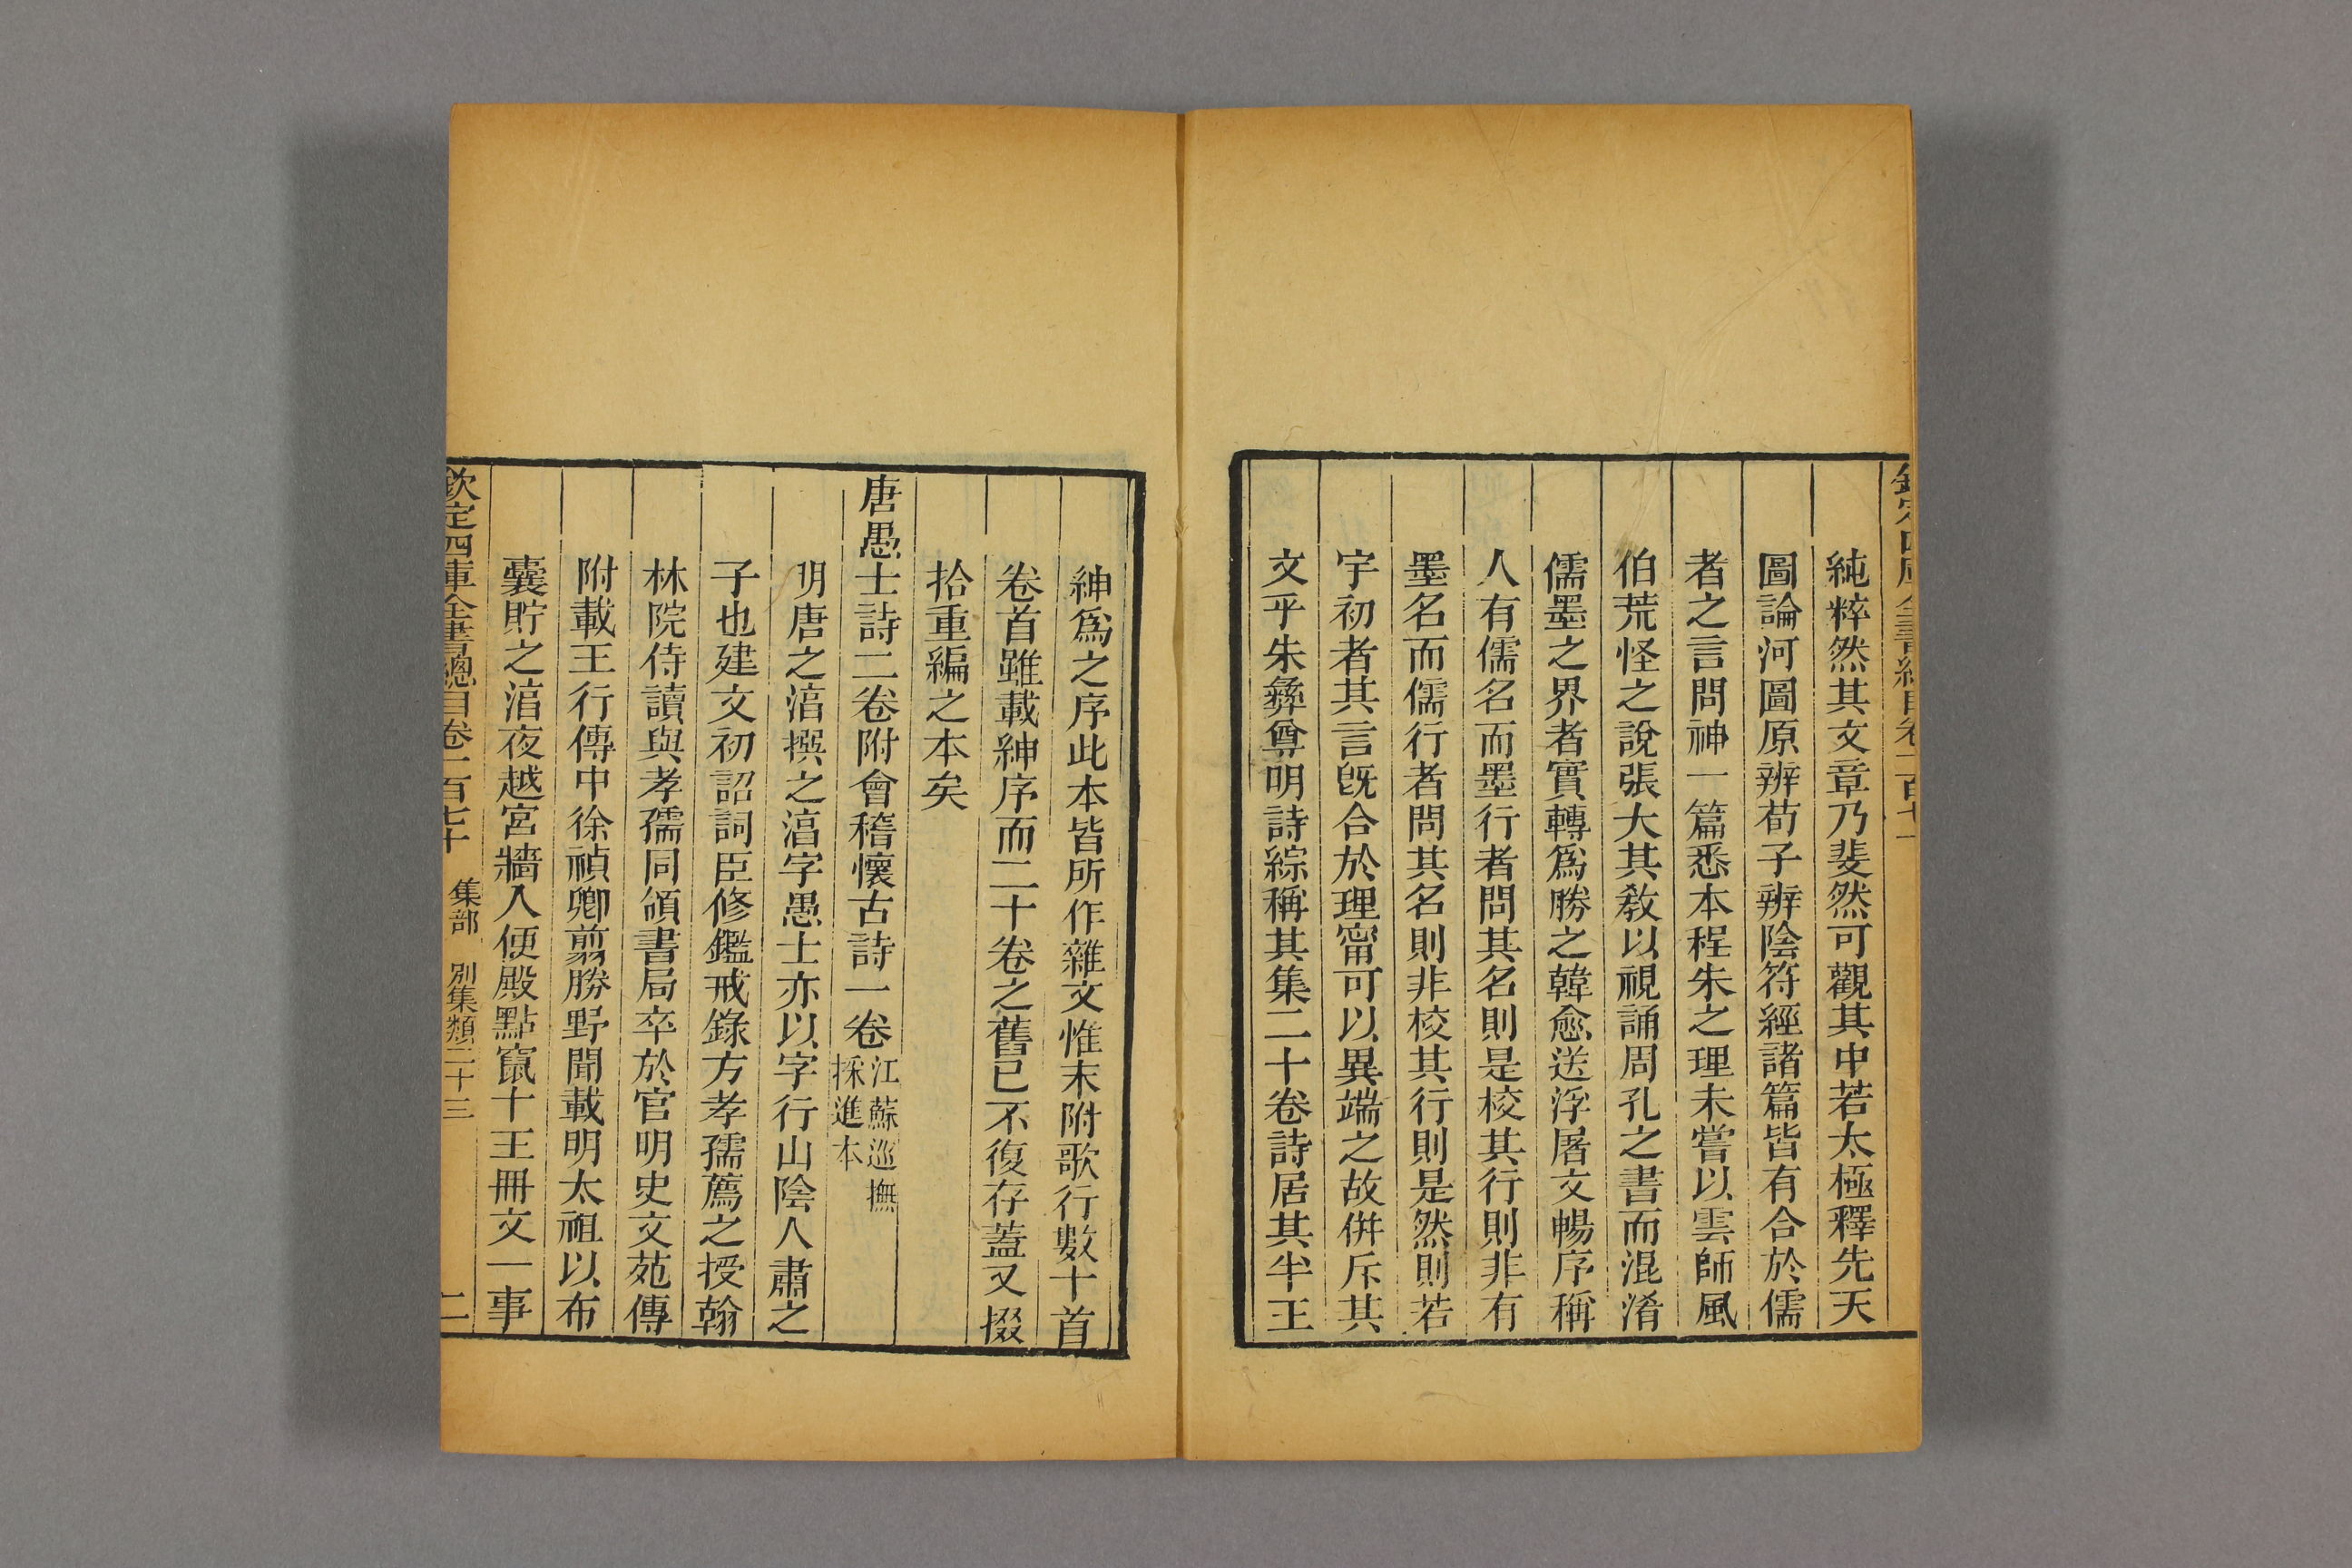 純粹然其文章乃斐然可觀其中若太極釋先天
圖論河圖原辨荀子辨陰符經諸篇皆有合於儒
者之言問神一篇悉本程朱之理未嘗以雲師風
伯荒怪之說張大其敎以視誦周孔之書而混淆
儒墨之界者實轉爲勝之韓愈送浮屠文暢序稱
人有儒名而墨行者問其名則是校其行則非有
墨名而儒行者問其名則非校其行則是然則若
宇初者其言旣合於理甯可以異端之故併斥其
文乎朱彝尊明詩綜稱其集二十卷詩居其半王
紳爲之序此本皆所作雜文惟末附歌行數十首
卷首雖載紳序而二十卷之舊已不復存蓋又掇
拾重編之本矣
唐愚士詩二卷附會稽懷古詩一卷江蘇巡撫採進本
明唐之淳撰之淳字愚士亦以字行山陰人肅之
子也建文初詔詞臣修鑑戒錄方孝孺薦之授翰
林院侍讀與孝孺同領書局卒於官明史文苑傳
附載王行傳中徐禎卿翦勝野聞載明太祖以布
囊貯之淳夜越宮牆入便殿點竄十王冊文一事
欽定四庫全書總目卷一百七十 集部 別集類二十三 二